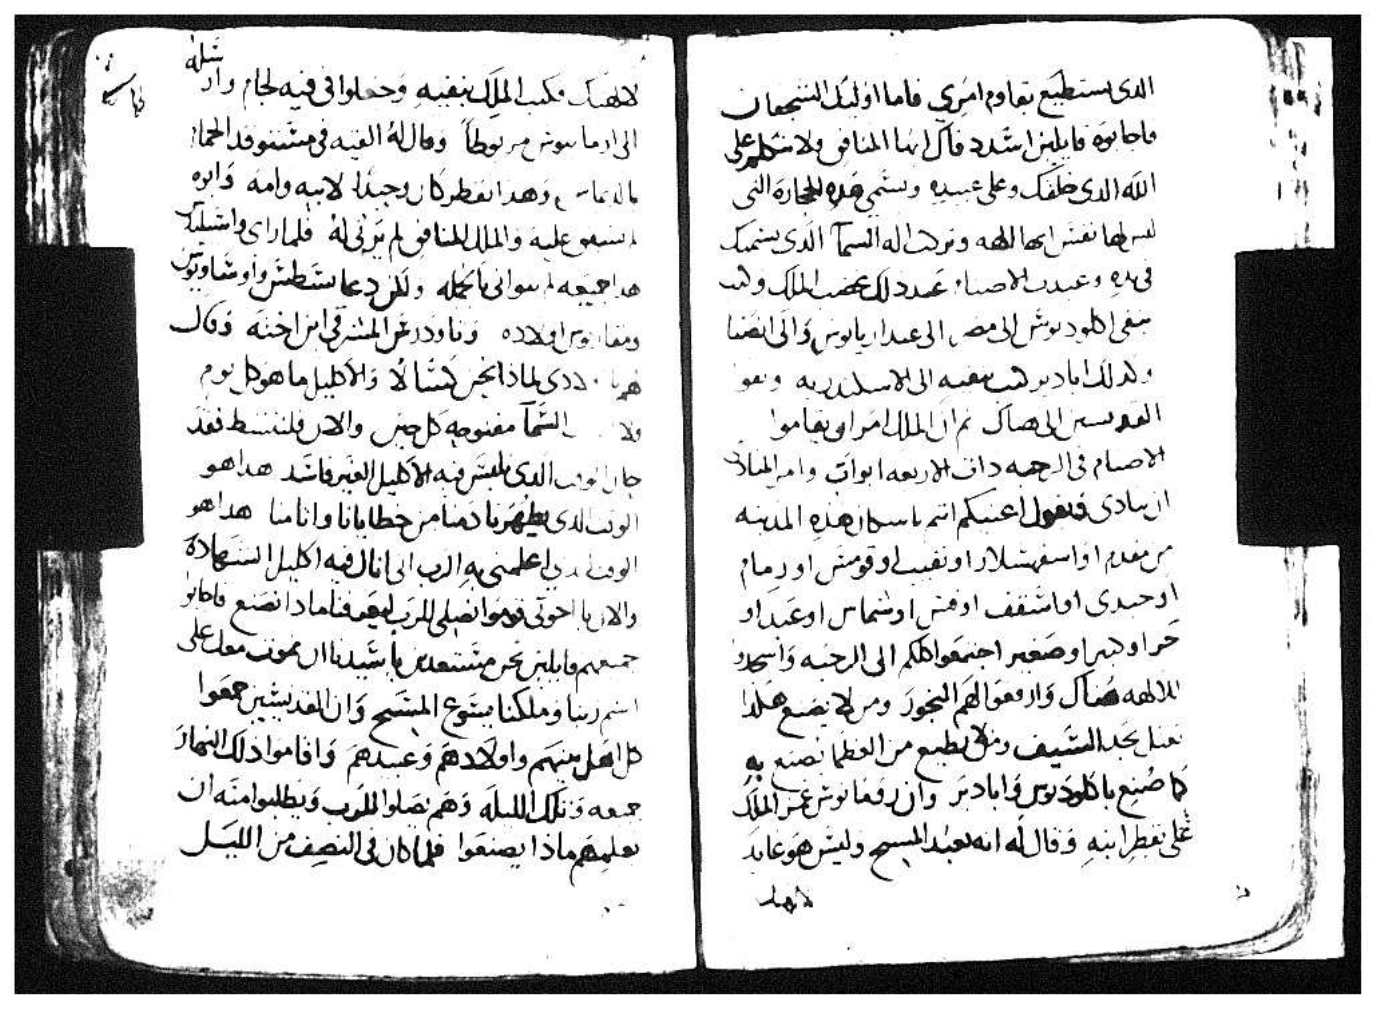 الدى يستطيع يقاوم امري فاما اوليك الشجعان
فاجابوه قايلين اشدد فاك ايها المنافق ولا تتكلم على
الله الدى خلقك وعلى عبيده وتسمى هده الحجارة التى
ليس لها نفس ايها الهه وتركت اله السمآ الدى يسمك
فى يده وعبدت الاصنام عند دلك غضب الملك وكتب
الى مصر الى عند اريانوس والى انصنا
وكدلك ابادير كتب الى الاسكندريه
القديسين الى هناك ثم ان الملك امر ان يقاموا
الاصنام فى الرحبه دات الاربعه ابواب وامر المنادى
ان ينادى فيقول اعنيكم انتم يا سكان هده المدينه
من مقدم او اسفهسلار او نقيب او قومس او زمام
او جندى او اسقف او قس او شماس او عبد او
حر او كبير او صغير اجتمعوا كلكم الى الرحبه واسجدوا
للالهه هناك وارفعوا لهم البخور ومن لا يصنع هكدا
يقتل بحد السيف ومن لا يطيع من العظما نصنع به
كما صنع باكلوديوس وابادير وان رفعانوس غمز الملك
على بقطر ابنه وقال له انه يعبد المسيح وليس هو عابد
لالهتك
لالهتك فكتب الملك بنفيه وجعلوا فى فيه لجام وارسله
الى ارمانيوس مربوطاً وقال له القيه فى مستوقد الحمام
وهدا بقطر كان وحيدا لابيه وامه وابوه
لم يشفق عليه والملك المنافق لم يرثى لهُ فلما راى واسيليدس
هدا جميعه لم يتوانى بالجمله ولكن دعا
اولاده وتاودرس المشرقى ابن اخته وقال
لهم يا اولادى لماذا نحن كسالا والاكليل ما هو كل يوم
ولا السمآ مفتوحه كل حين والان فلننشط فقد
حان الوقت الدى نلبس فيه الاكليل الغير فاسد هدا هو
الوقت الدى يطهرنا دمنا من خطايانا واتامنا هدا هو
الوقت الدى اعلمنى به الرب انى انال فيه اكليل الشهادة
والان يا اخوتى قوموا نصلى للرب ليعرفنا مادا نصنع فاجابوا
جميعهم قايلين نحن مستعدين يا سيدنا ان نموت معك على
اسم ربنا وملكنا يسوع المسيح وان القديسين جمعوا
كل اهل بيتهم واولادهم وعبيدهم واقاموا ذلك النهار
جميعه وتلك الليلة وهم يصلوا للرب ويطلبوا منه ان
يعلمهم ماذا يصنعوا فلما كان فى النصف من الليل